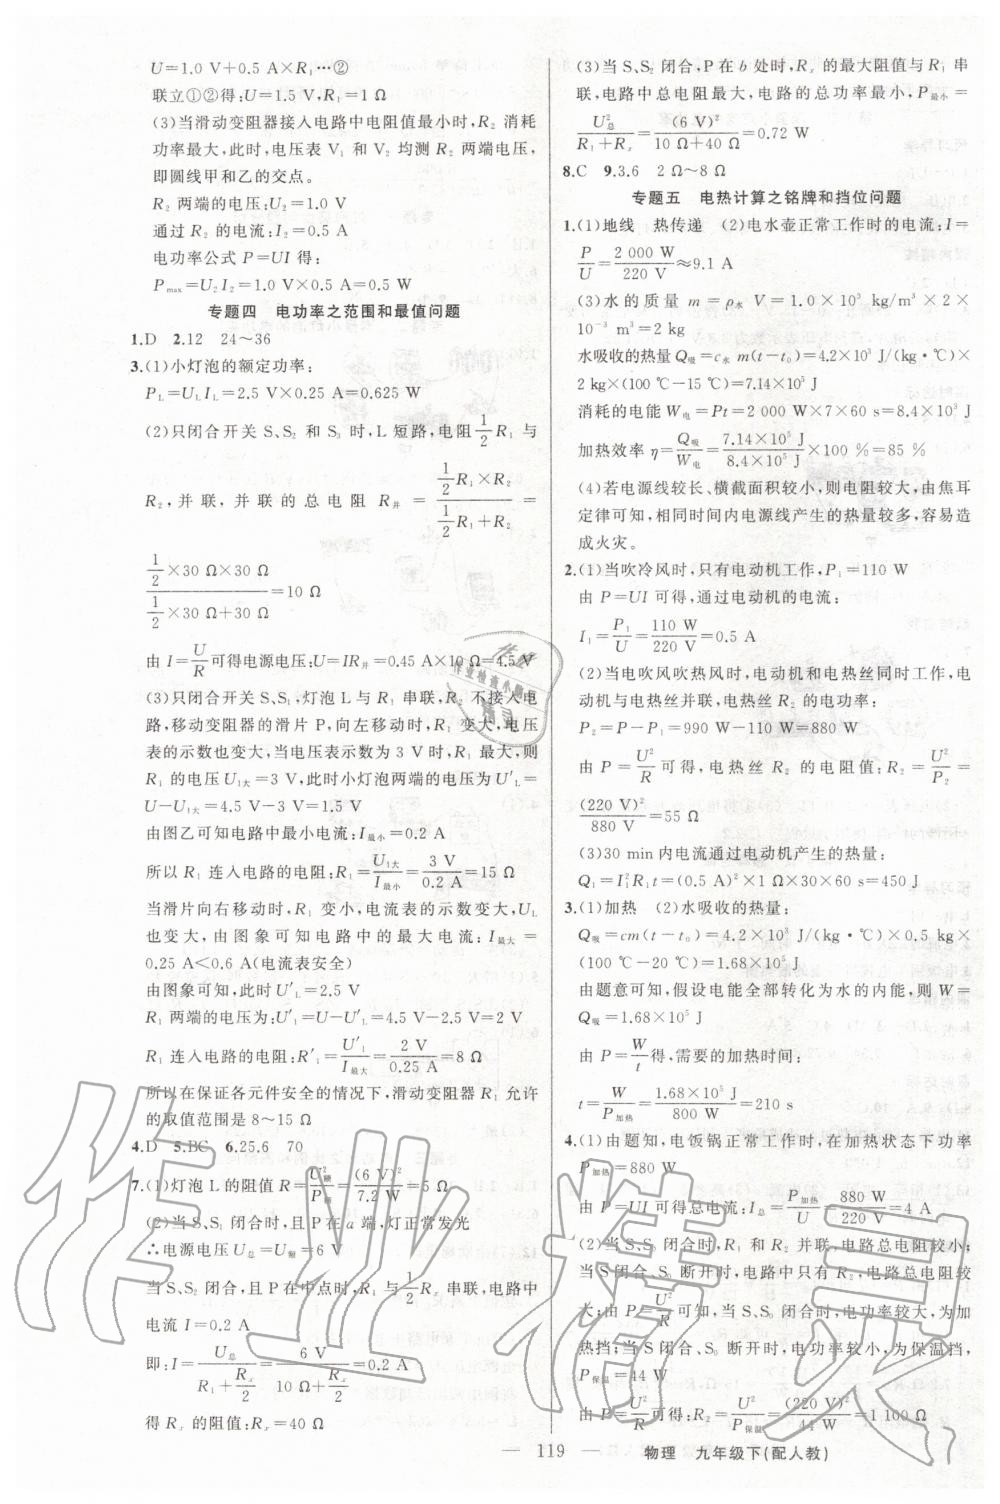 U=1.0 V+0.5 A×R₁…②
联立①②得:U=1.5 V,R₁=1 Ω
(3)当滑动变阻器接入电路中电阻值最小时,R₂ 消耗
功率最大,此时,电压表 V₁ 和 V₂ 均测 R₂ 两端电压,
即圆线甲和乙的交点。
R₂ 两端的电压:U₂=1.0 V
通过 R₂ 的电流:I₂=0.5 A
电功率公式 P=UI 得:
Pmax=U₂I₂=1.0 V×0.5 A=0.5 W
专题四 电功率之范围和最值问题
1.D 2.12 24～36
3.(1)小灯泡的额定功率:
P_L=U_L I_L=2.5 V×0.25 A=0.625 W
(2)只闭合开关 S、S₂ 和 S₃ 时,L 短路,电阻 1/2 R₁ 与
R₂,并联,并联的总电阻 R并 = (1/2 R₁×R₂)/(1/2 R₁+R₂) =
(1/2×30 Ω×30 Ω)/(1/2×30 Ω+30 Ω)=10 Ω
由 I=U/R 可得电源电压:U=IR并=0.45 A×10 Ω=4.5 V
(3)只闭合开关 S、S₁,灯泡 L 与 R₁ 串联,R₂ 不接入电
路,移动变阻器的滑片 P,向左移动时,R₁ 变大,电压
表的示数也变大,当电压表示数为 3 V 时,R₁ 最大,则
R₁ 的电压 U₁大=3 V,此时小灯泡两端的电压为 U′_L=
U－U₁大=4.5 V－3 V=1.5 V
由图乙可知电路中最小电流:I最小=0.2 A
所以 R₁ 连入电路的电阻:R₁=U₁大/I最小=3 V/0.2 A=15 Ω
当滑片向右移动时,R₁ 变小,电流表的示数变大,U_L
也变大,由图象可知电路中的最大电流:I最大=
0.25 A<0.6 A(电流表安全)
由图象可知,此时 U′_L=2.5 V
R₁ 两端的电压为:U′₁=U－U′_L=4.5 V－2.5 V=2 V
R₁ 连入电路的电阻:R′₁=U′₁/I最大=2 V/0.25 A=8 Ω
所以在保证各元件安全的情况下,滑动变阻器 R₁ 允许
的取值范围是 8～15 Ω
4.D 5.BC 6.25.6 70
7.(1)灯泡 L 的阻值 R=U²额/P额=(6 V)²/7.2 W=5 Ω
(2)当 S、S₁ 闭合时,且 P 在 a 端,灯正常发光
∴电源电压 U总=U额=6 V
当 S、S₂ 闭合,且 P 在中点时,R₁ 与 1/2 Rₓ 串联,电路中
电流 I=0.2 A
即:I=U总/(R₁+Rₓ/2)=6 V/(10 Ω+Rₓ/2)=0.2 A
得 Rₓ 的阻值:Rₓ=40 Ω
(3)当 S、S₂ 闭合,P 在 b 处时,Rₓ 的最大阻值与 R₁ 串
联,电路中总电阻最大,电路的总功率最小,P最小=
U²总/(R₁+Rₓ)=(6 V)²/(10 Ω+40 Ω)=0.72 W
8.C 9.3.6 2 Ω～8 Ω
专题五 电热计算之铭牌和挡位问题
1.(1)地线 热传递 (2)电水壶正常工作时的电流:I=
P/U=2 000 W/220 V≈9.1 A
(3)水的质量 m=ρ水 V=1.0×10³ kg/m³×2×
10⁻³ m³=2 kg
水吸收的热量 Q吸=c水 m(t－t₀)=4.2×10³ J/(kg·℃)×
2 kg×(100 ℃－15 ℃)=7.14×10⁵ J
消耗的电能 W电=Pt=2 000 W×7×60 s=8.4×10⁵ J
加热效率 η=Q吸/W电=7.14×10⁵ J/8.4×10⁵ J×100 %=85 %
(4)若电源线较长、横截面积较小,则电阻较大,由焦耳
定律可知,相同时间内电源线产生的热量较多,容易造
成火灾。
2.(1)当吹冷风时,只有电动机工作,P₁=110 W
由 P=UI 可得,通过电动机的电流:
I₁=P₁/U=110 W/220 V=0.5 A
(2)当电吹风吹热风时,电动机和电热丝同时工作,电
动机与电热丝并联,电热丝 R₂ 的电功率:
P₂=P－P₁=990 W－110 W=880 W
由 P=U²/R 可得,电热丝 R₂ 的电阻值:R₂=U²/P₂=
(220 V)²/880 V=55 Ω
(3)30 min 内电流通过电动机产生的热量:
Q₁=I₁²R₁t=(0.5 A)²×1 Ω×30×60 s=450 J
3.(1)加热 (2)水吸收的热量:
Q吸=cm(t－t₀)=4.2×10³ J/(kg·℃)×0.5 kg×
(100 ℃－20 ℃)=1.68×10⁵ J
由题意可知,假设电能全部转化为水的内能,则 W=
Q吸=1.68×10⁵ J
由 P=W/t 得,需要的加热时间:
t=W/P加热=1.68×10⁵ J/800 W=210 s
4.(1)由题知,电饭锅正常工作时,在加热状态下功率
P加热=880 W
由 P=UI 可得总电流:I总=P加热/U=880 W/220 V=4 A
(2)当 S、S₀ 闭合时,R₁ 和 R₂ 并联,电路总电阻较小;
当 S 闭合、S₀ 断开时,电路中只有 R₂,电路总电阻较
大;由 P=U²/R 可知,当 S、S₀ 闭合时,电功率较大,为加
热挡;当 S 闭合、S₀ 断开时,电功率较小,为保温挡,
P保温=44 W
由 P=U²/R 可得:R₂=U²/P保温=(220 V)²/44 W=1 100 Ω
— 119 — 物理 九年级下(配人教)
作业精灵
作业
作业检查小帮手
精灵